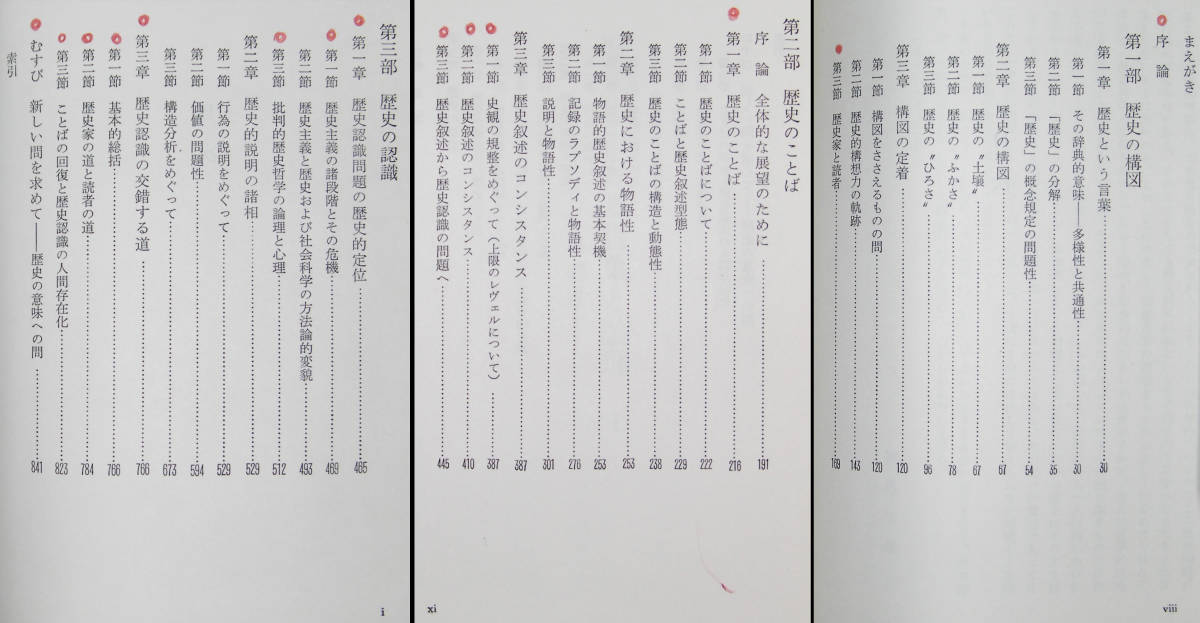 まえがき
序論
第一部 歴史の構図
第一章 歴史という言葉……30
第一節 その辞典的意味――多様性と共通性……30
第二節 「歴史」の分解……35
第三節 「歴史」の概念規定の問題性……54
第二章 歴史の構図……67
第一節 歴史の〝土壌〟……67
第二節 歴史の〝ふかさ〟……78
第三節 歴史の〝ひろさ〟……96
第三章 構図の定着……120
第一節 構図をささえるものの問……120
第二節 歴史的構想力の軌跡……143
第三節 歴史家と読者……169
viii
第二部 歴史のことば
序論 全体的な展望のために……191
第一章 歴史のことば……216
第一節 歴史のことばについて……222
第二節 ことばと歴史叙述型態……229
第三節 歴史のことばの構造と動態性……238
第二章 歴史における物語性……253
第一節 物語的歴史叙述の基本契機……253
第二節 記録のラプソディと物語性……276
第三節 説明と物語性……301
第三章 歴史叙述のコンシスタンス……387
第一節 史観の規整をめぐって(上限のレヴェルについて)……387
第二節 歴史叙述のコンシスタンス……410
第三節 歴史叙述から歴史認識の問題へ……445
xi
第三部 歴史の認識
第一章 歴史認識問題の歴史的定位……465
第一節 歴史主義の諸段階とその危機……469
第二節 歴史主義と歴史および社会科学の方法論的変貌……493
第三節 批判的歴史哲学の論理と心理……512
第二章 歴史的説明の諸相……529
第一節 行為の説明をめぐって……529
第二節 価値の問題性……594
第三節 構造分析をめぐって……673
第三章 歴史認識の交錯する道……766
第一節 基本的総括……766
第二節 歴史家の道と読者の道……784
第三節 ことばの回復と歴史認識の人間存在化……823
むすび 新しい問を求めて――歴史の意味への問……841
索引
i